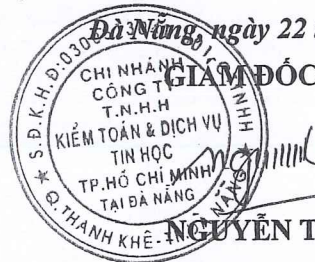 Đà Nẵng, ngày 22
GIÁM ĐỐC
S.Đ.K.H.Đ:030
CHI NHÁNH
CÔNG TY
T.N.H.H
KIỂM TOÁN & DỊCH VỤ
TIN HỌC
TP.HỒ CHÍ MINH
TẠI ĐÀ NẴNG
Q.THANH KHÊ
NGUYỄN T